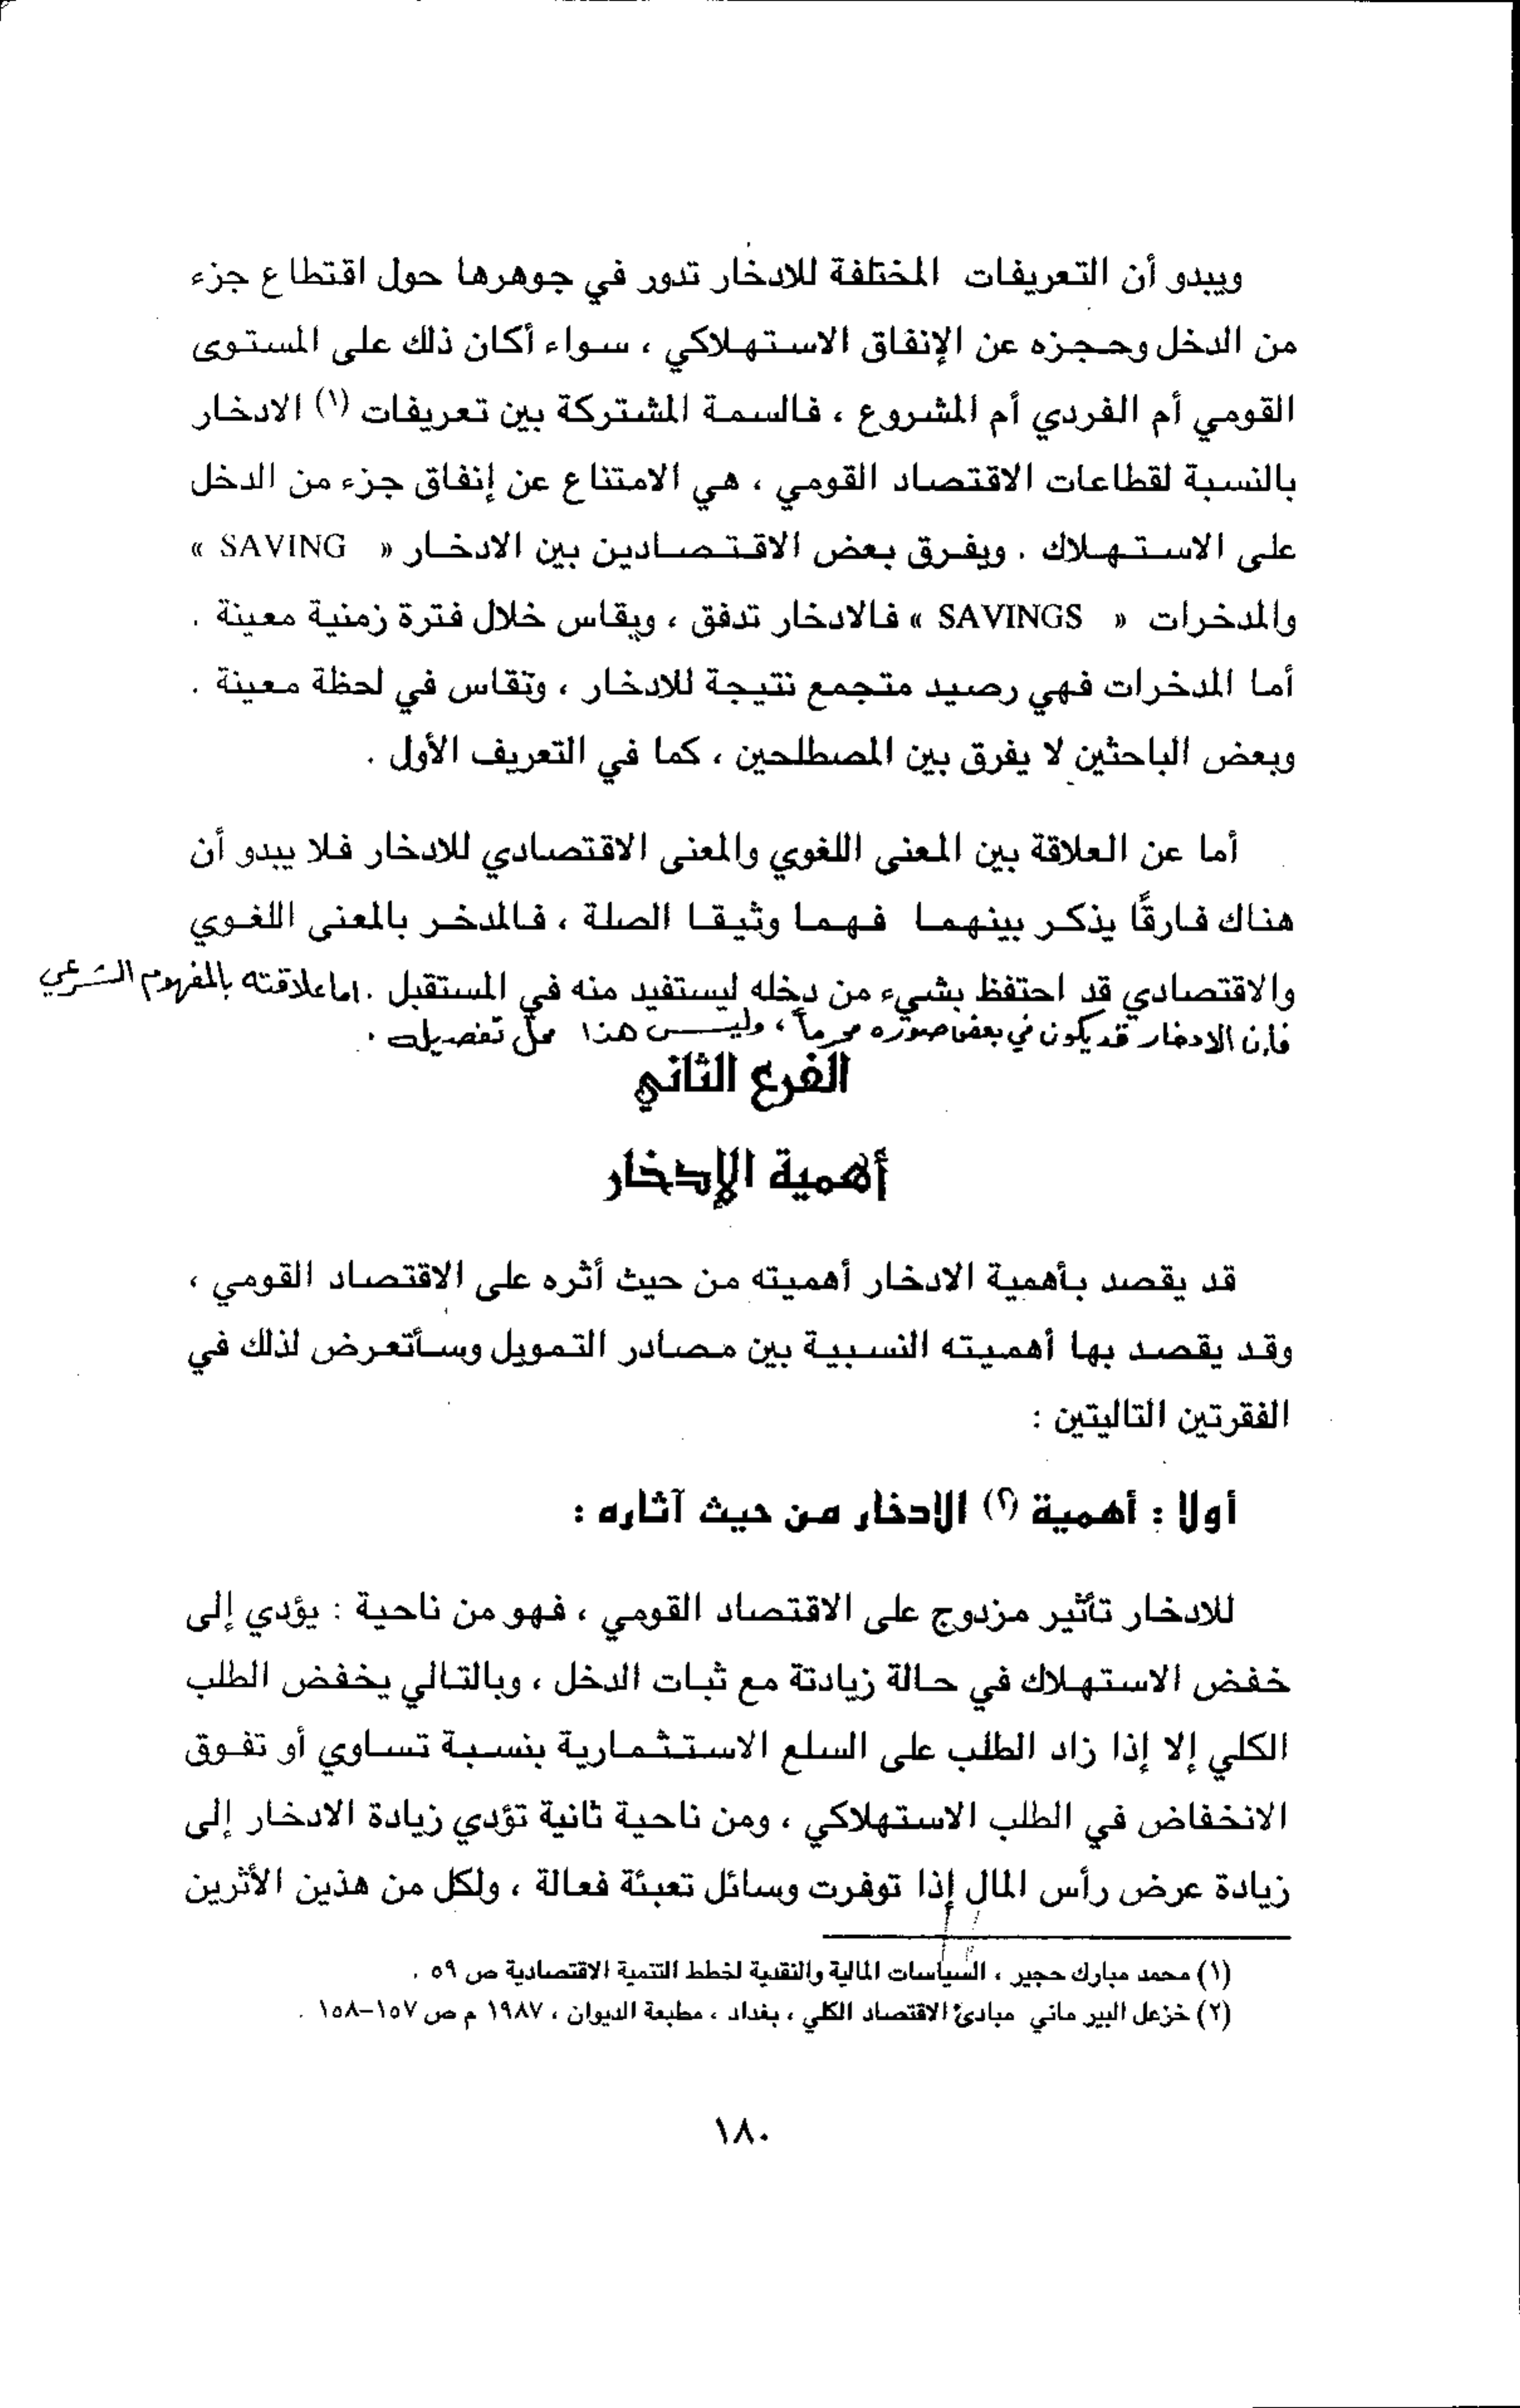 ويبدو أن التعريفات المختلفة للادخار تدور في جوهرها حول اقتطاع جزء
من الدخل وحجزه عن الإنفاق الاستهلاكي ، سواء أكان ذلك على المستوى
القومي أم الفردي أم المشروع ، فالسمة المشتركة بين تعريفات (١) الادخار
بالنسبة لقطاعات الاقتصاد القومي ، هي الامتناع عن إنفاق جزء من الدخل
على الاستهلاك . ويفرق بعض الاقتصادين بين الادخار « SAVING »
والمدخرات « SAVINGS » فالادخار تدفق ، ويقاس خلال فترة زمنية معينة .
أما المدخرات فهي رصيد متجمع نتيجة للادخار ، وتقاس في لحظة معينة .
وبعض الباحثين لا يفرق بين المصطلحين ، كما في التعريف الأول .
أما عن العلاقة بين المعنى اللغوي والمعنى الاقتصادي للادخار فلا يبدو أن
هناك فارقًا يذكر بينهما فهما وثيقا الصلة ، فالمدخر بالمعنى اللغوي
والاقتصادي قد احتفظ بشيء من دخله ليستفيد منه في المستقبل . اما علاقته بالمفهوم الشرعي
فإن الادخار قد يكون في بعض صوره محرماً ، وليس هذا محل تفصيله .
الفرع الثاني
أهمية الإدخار
قد يقصد بأهمية الادخار أهميته من حيث أثره على الاقتصاد القومي ،
وقد يقصد بها أهميته النسبية بين مصادر التمويل وسأتعرض لذلك في
الفقرتين التاليتين :
أولا : أهمية (٢) الإدخار من حيث آثاره :
للادخار تأثير مزدوج على الاقتصاد القومي ، فهو من ناحية : يؤدي إلى
خفض الاستهلاك في حالة زيادتة مع ثبات الدخل ، وبالتالي يخفض الطلب
الكلي إلا إذا زاد الطلب على السلع الاستثمارية بنسبة تساوي أو تفوق
الانخفاض في الطلب الاستهلاكي ، ومن ناحية ثانية تؤدي زيادة الادخار إلى
زيادة عرض رأس المال إذا توفرت وسائل تعبئة فعالة ، ولكل من هذين الأثرين
(١) محمد مبارك حجير ، السياسات المالية والنقدية لخطط التنمية الاقتصادية ص ٥٩ .
(٢) خزعل البير ماني مبادئ الاقتصاد الكلي ، بغداد ، مطبعة الديوان ، ١٩٨٧ م ص ١٥٧–١٥٨ .
١٨٠